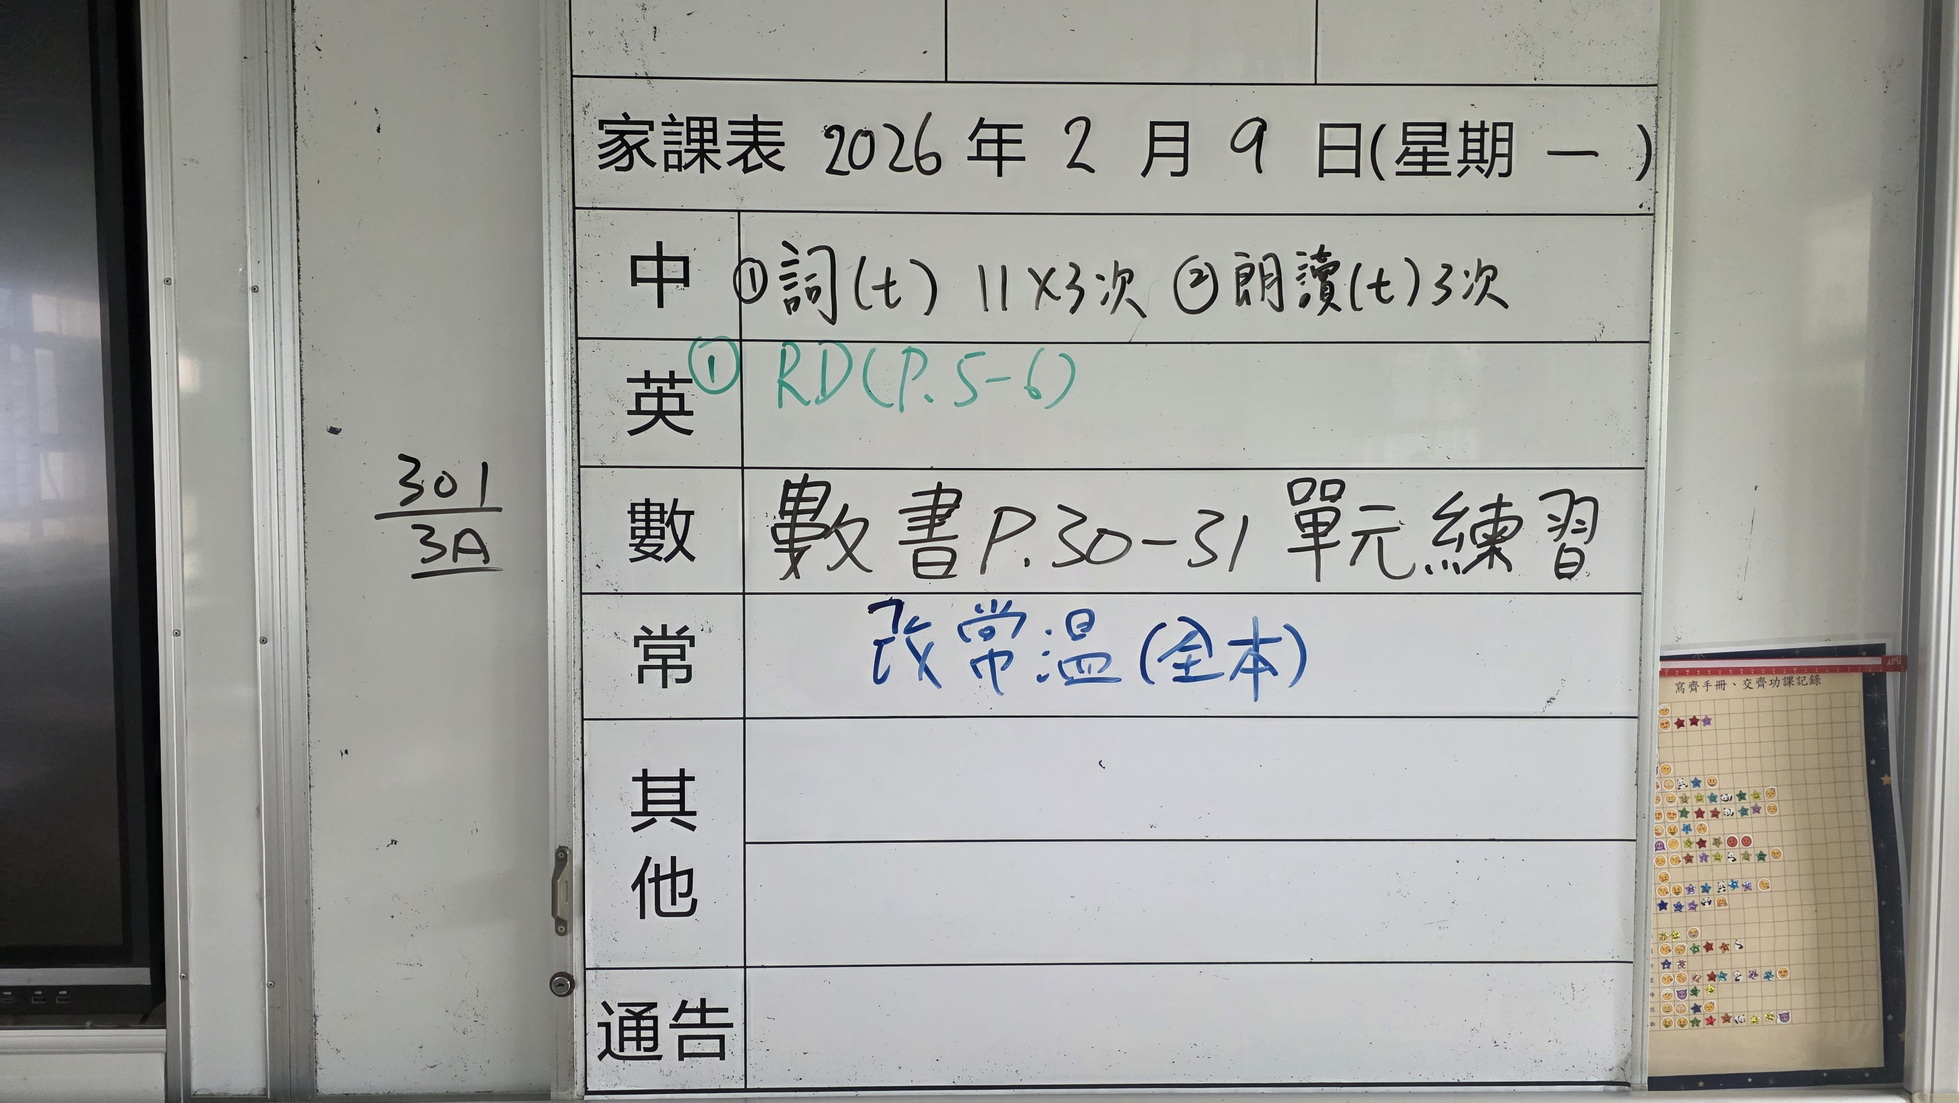 家課表 2026 年 2 月 9 日(星期 一 )
中 ①詞(t) 11×3次 ②朗讀(t)3次
英 ① RD(P.5-6)
301
3A
數 數書P.30-31單元練習
常 改常溫(全本)
寫齊手冊、交齊功課記錄
其他
通告